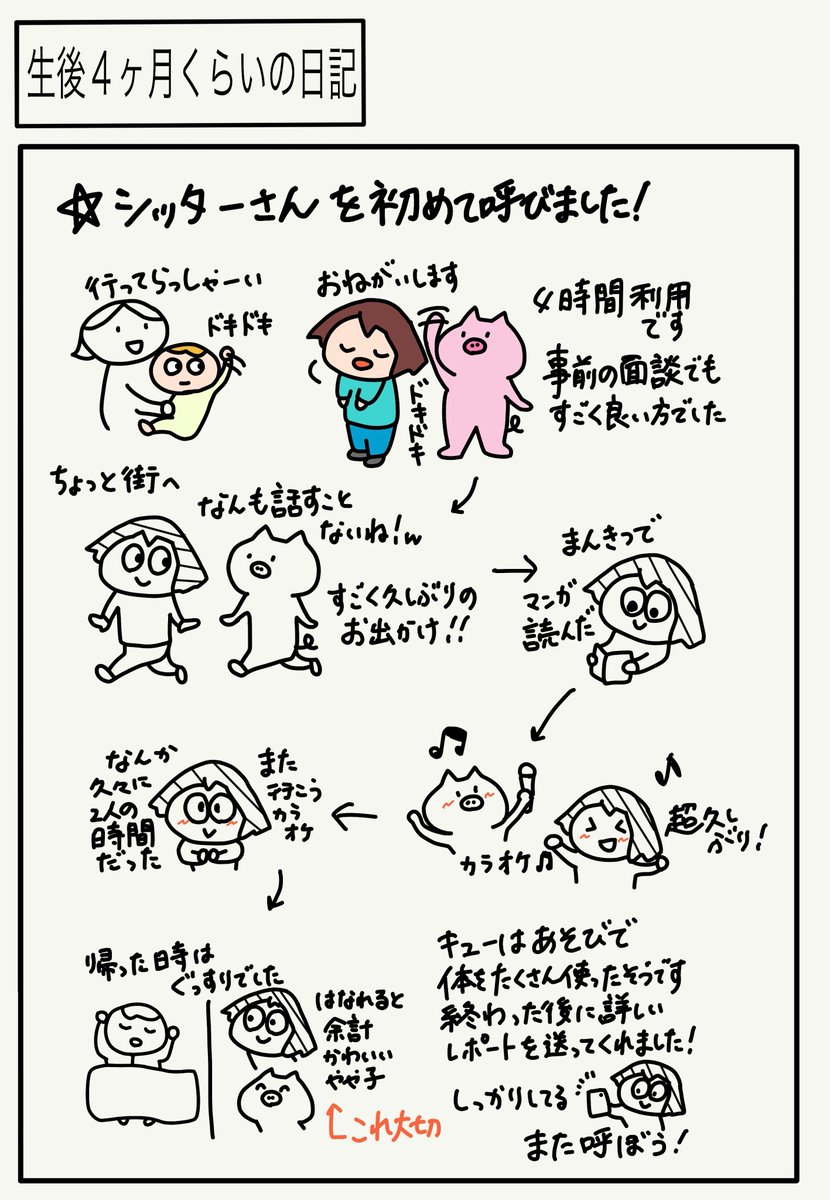 生後4ヶ月くらいの日記
☆シッターさんを初めて呼びました!
行ってらっしゃーい
ドキドキ
おねがいします
ドキドキ
4時間利用
です
事前の面談でも
すごく良い方でした
ちょっと街へ
なんも話すこと
ないね!w
すごく久しぶりの
お出かけ!!
まんきつで
マンガ
読んだ
カラオケ♫
超久し
ぶり!
また
行こう
カラ
オケ
なんか
久々に
2人の
時間
だった
帰った時は
ぐっすりでした
はなれると
余計
かわいい
やや子
これ大切
キューはあそびで
体をたくさん使ったそうです
終わった後に詳しい
レポートを送ってくれました!
しっかりしてる
また呼ぼう!